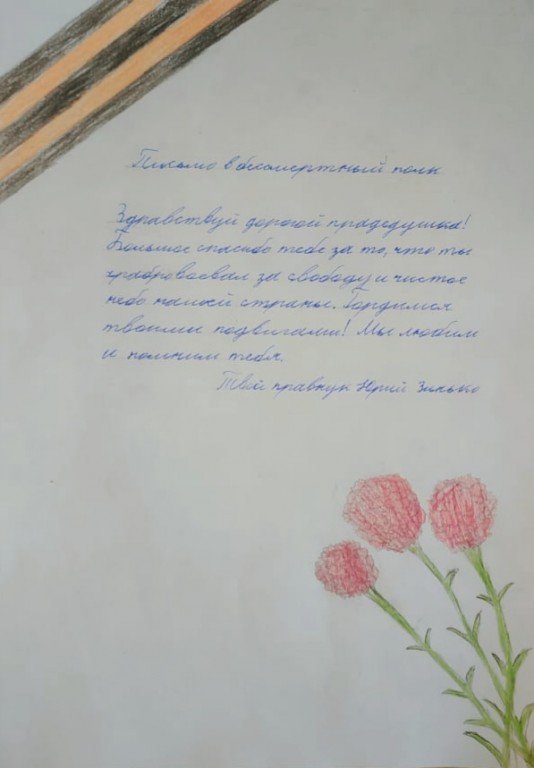 Письмо в бессмертный полк
Здравствуй дорогой прадедушка!
Большое спасибо тебе за то, что ты
храбровоевал за свободу и чистое
небо нашей страны. Гордимся
твоими подвигами! Мы любим
и помним тебя.
Твой правнук Юрий Зинько